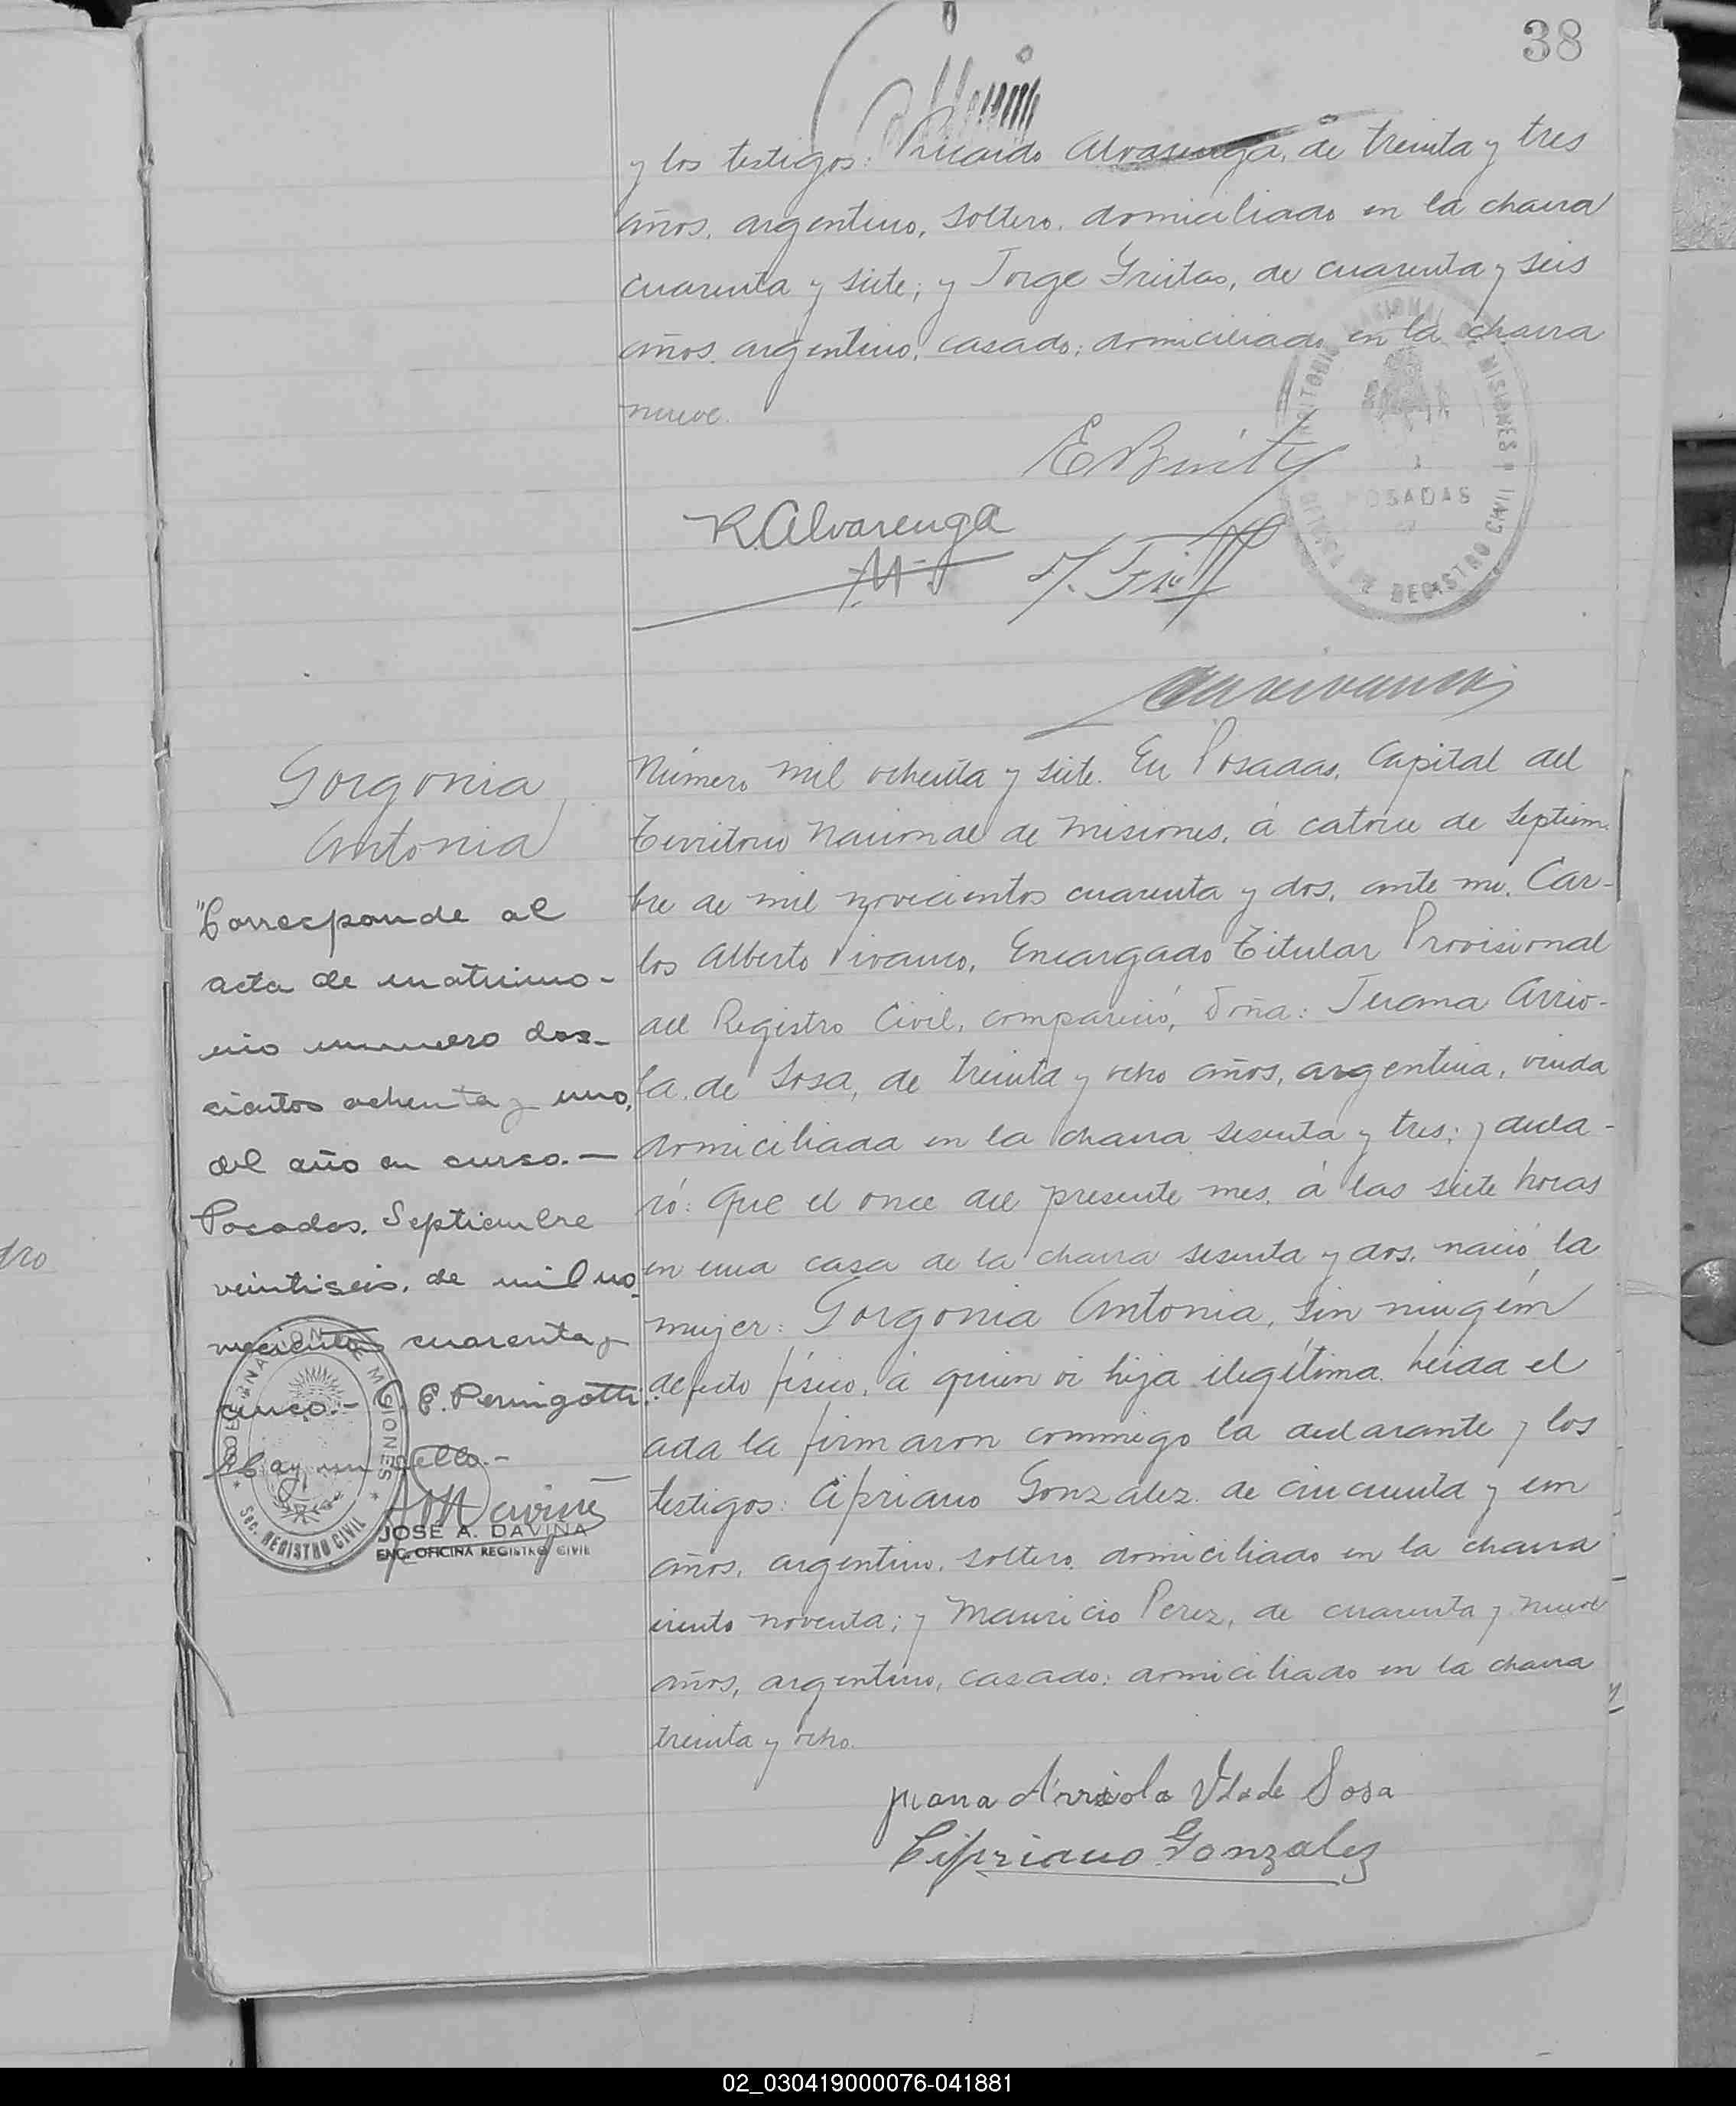 38
y los testigos: Ricardo Alvarenga, de treinta y tres
años, argentino, soltero, domiciliado en la chacra
cuarenta y siete; y Jorge Frietas, de cuarenta y seis
años, argentino, casado; domiciliado en la chacra
nueve.
E Benitz
R. Alvarenga
TERRITORIO NACIONAL DE MISIONES
POSADAS
OFICINA DE REGISTRO CIVIL
Gorgonia
Antonia
"Corresponde al
acta de matrimo-
nio número dos-
cientos ochenta y uno,
del año en curso.—
Posadas, Septiembre
veintiseis, de mil no-
vecientos cuarenta y
cinco.- E. Peringotti.
Hay un sello.-
GOBERNACION DE MISIONES
Sec. REGISTRO CIVIL
JOSE A. DAVIÑA
ENC. OFICINA REGISTRO CIVIL
Número mil ochenta y siete. En Posadas, Capital del
Territorio Nacional de Misiones, á catorce de Septiem-
bre de mil novecientos cuarenta y dos, ante mí, Car-
los Alberto Vivanco, Encargado Titular Provisional
del Registro Civil, compareció, Doña: Juana Arrio-
la de Sosa, de treinta y ocho años, argentina, viuda
domiciliada en la chacra sesenta y tres; y decla-
ró: Que el once del presente mes, á las siete horas
en una casa de la chacra sesenta y dos, nació la
mujer: Gorgonia Antonia, sin ningún
defecto físico, á quien vi hija ilegítima. Leida el
acta la firmaron conmigo la declarante y los
testigos: Cipriano Gonzalez de cincuenta y un
años, argentino, soltero, domiciliado en la chacra
ciento noventa; y Mauricio Perez, de cuarenta y nueve
años, argentino, casado; domiciliado en la chacra
treinta y ocho.
Juana Arriola Vda de Sosa
Cipriano Gonzalez
02_030419000076-041881